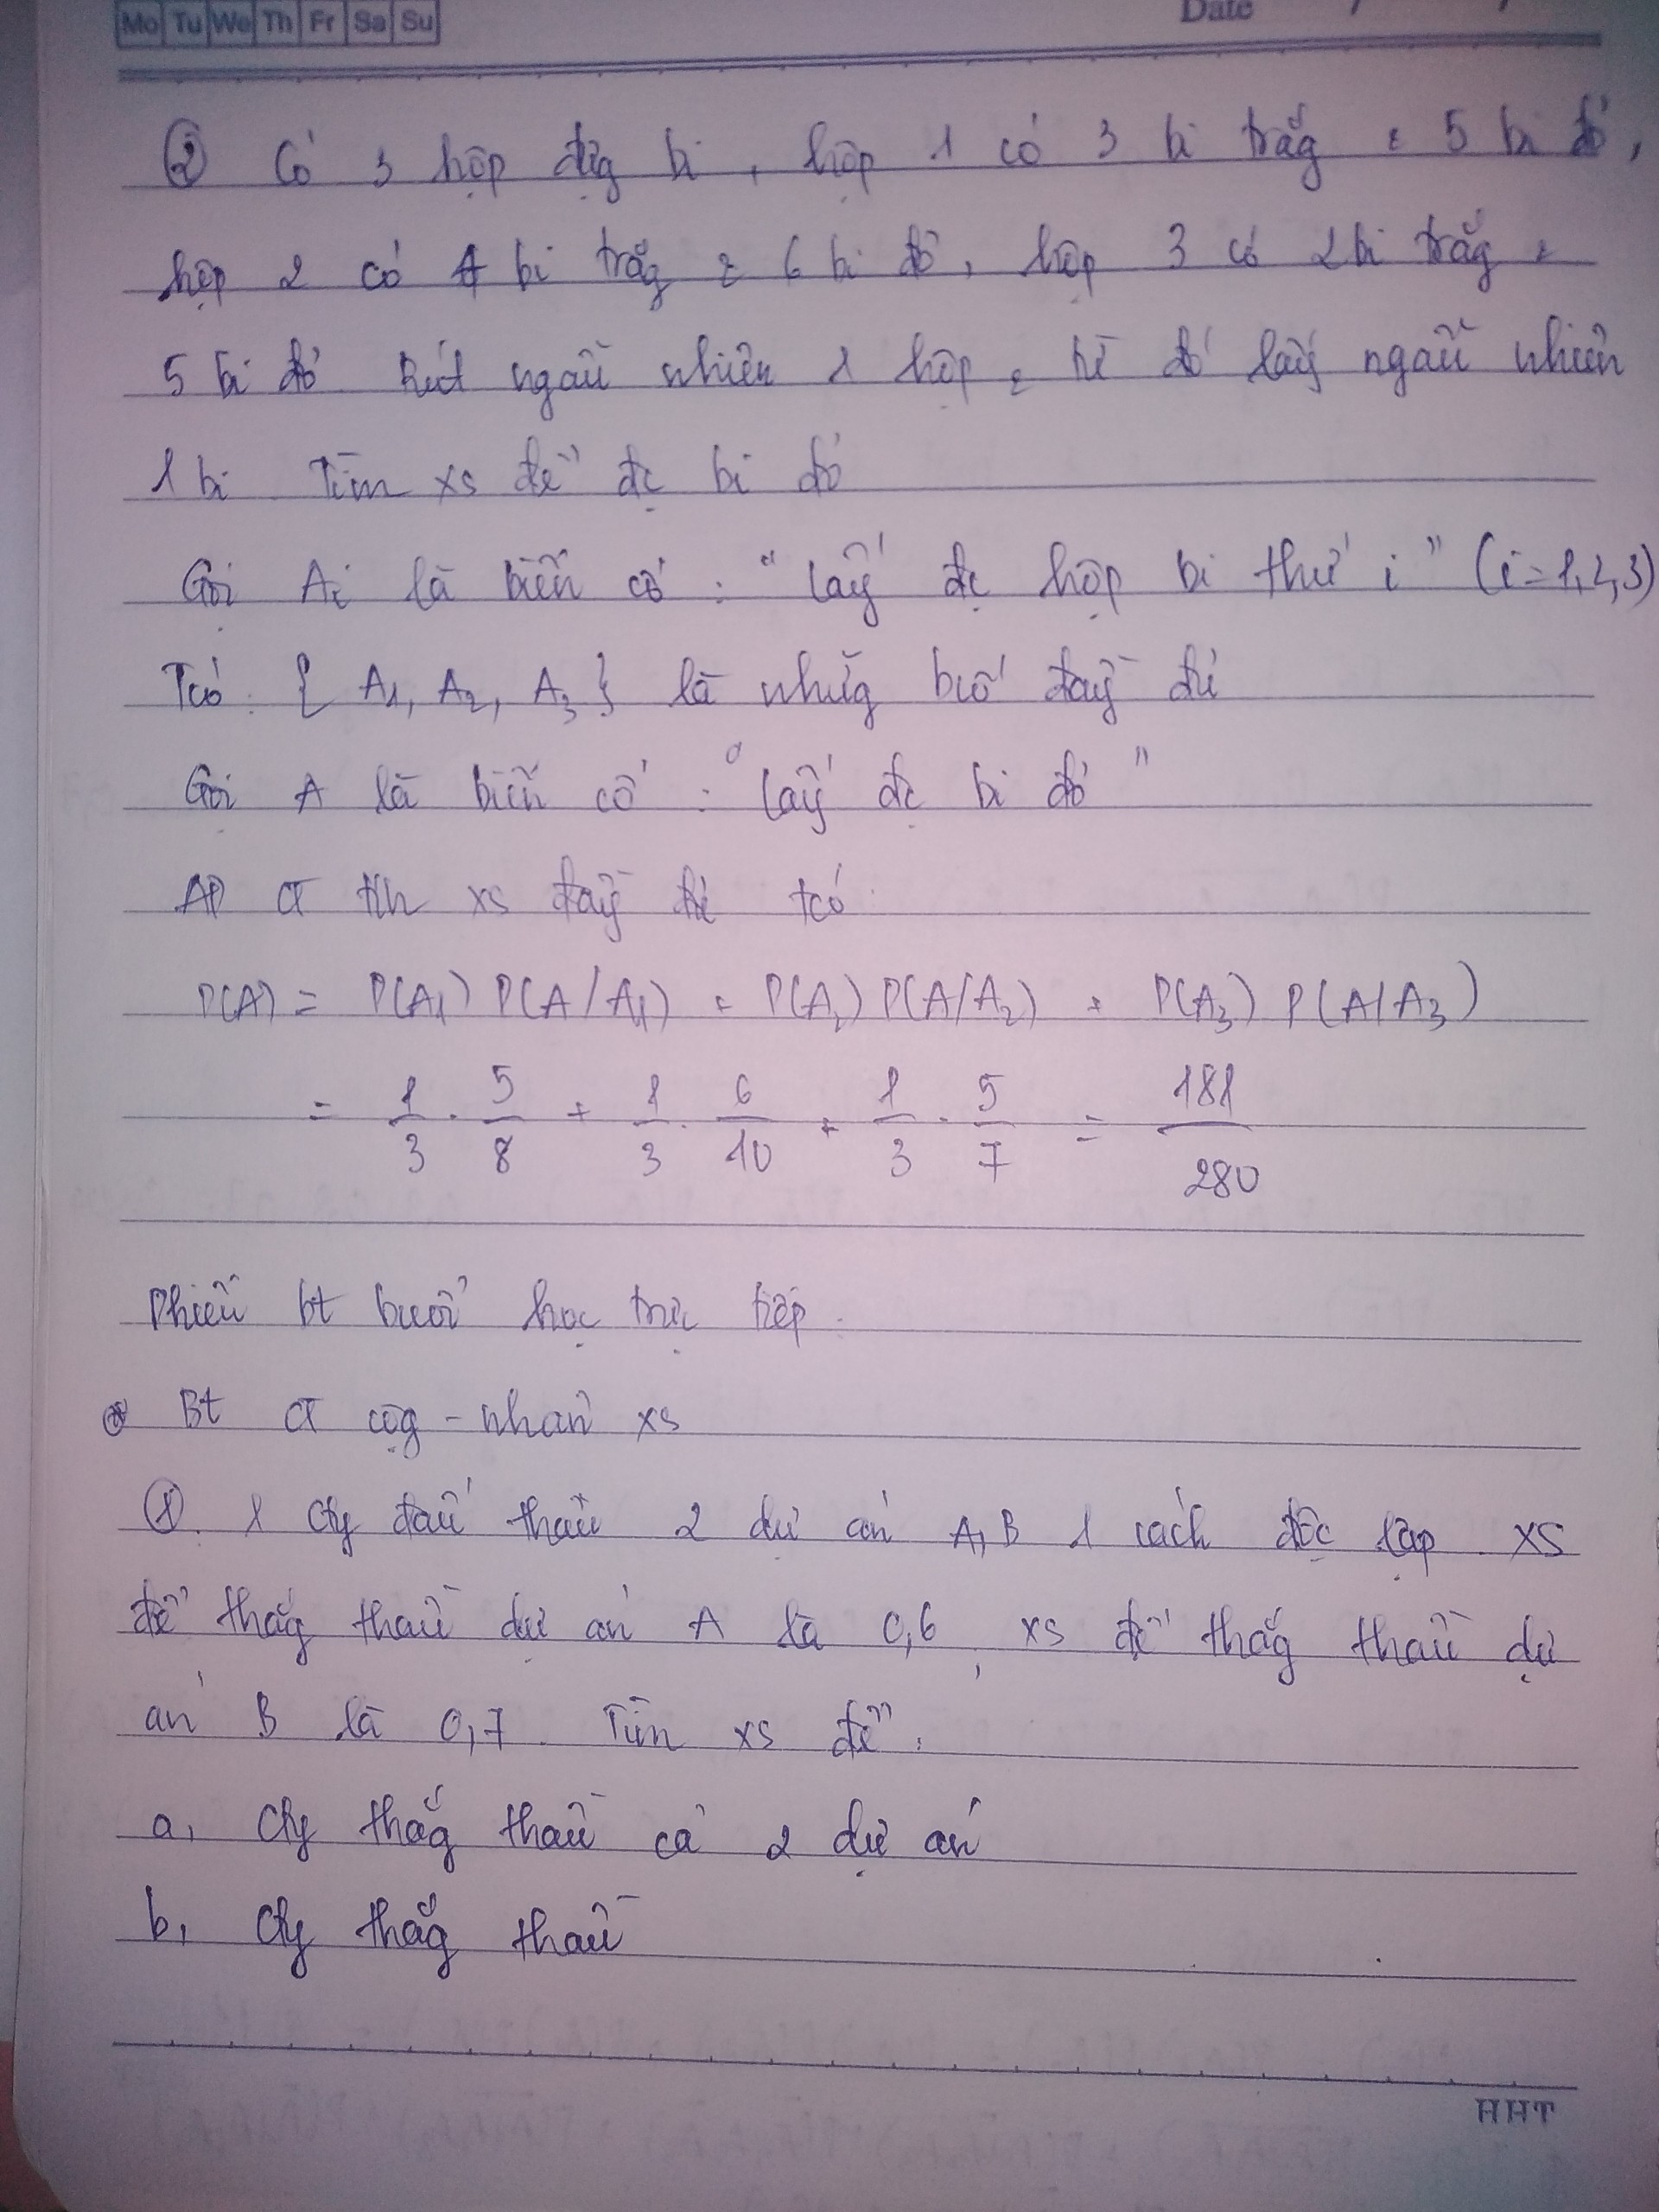 Mo Tu We Th Fr Sa Su Date
② Có 3 hộp đựg bi, hộp 1 có 3 bi trắg & 5 bi đỏ,
hộp 2 có 4 bi trắg & 6 bi đỏ, hộp 3 có 2 bi trắg &
5 bi đỏ. Rút ngẫu nhiên 1 hộp & từ đó lấy ngẫu nhiên
1 bi. Tìm xs để đc bi đỏ
Gọi Ai là biến cố: "lấy đc hộp bi thứ i" (i=1,2,3)
Tcó: { A1, A2, A3 } là nhữg bcố đầy đủ
Gọi A là biến cố: "lấy đc bi đỏ"
AD CT tih xs đầy đủ tcó:
P(A) = P(A1) P(A/A1) + P(A2) P(A/A2) + P(A3) P(A/A3)
= 1/3 . 5/8 + 1/3 . 6/10 + 1/3 . 5/7 = 181/280
Phiếu bt buổi học trực tiếp.
* Bt CT cộg - nhân xs
①. 1 cty đấu thầu 2 dự án A, B 1 cách độc lập. XS
để thắg thầu dự án A là 0,6, xs để thắg thầu dự
án B là 0,7. Tìm xs để:
a, Cty thắg thầu cả 2 dự án
b, Cty thắg thầu
HHT